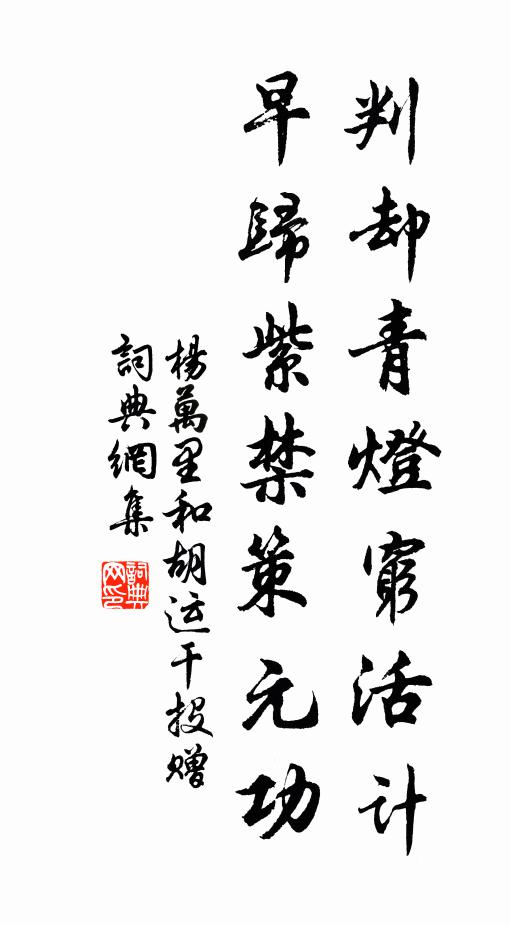 判却青燈窮活計
早歸紫禁策元功
楊萬里和胡运干投赠
詞典網集
詞典
网印